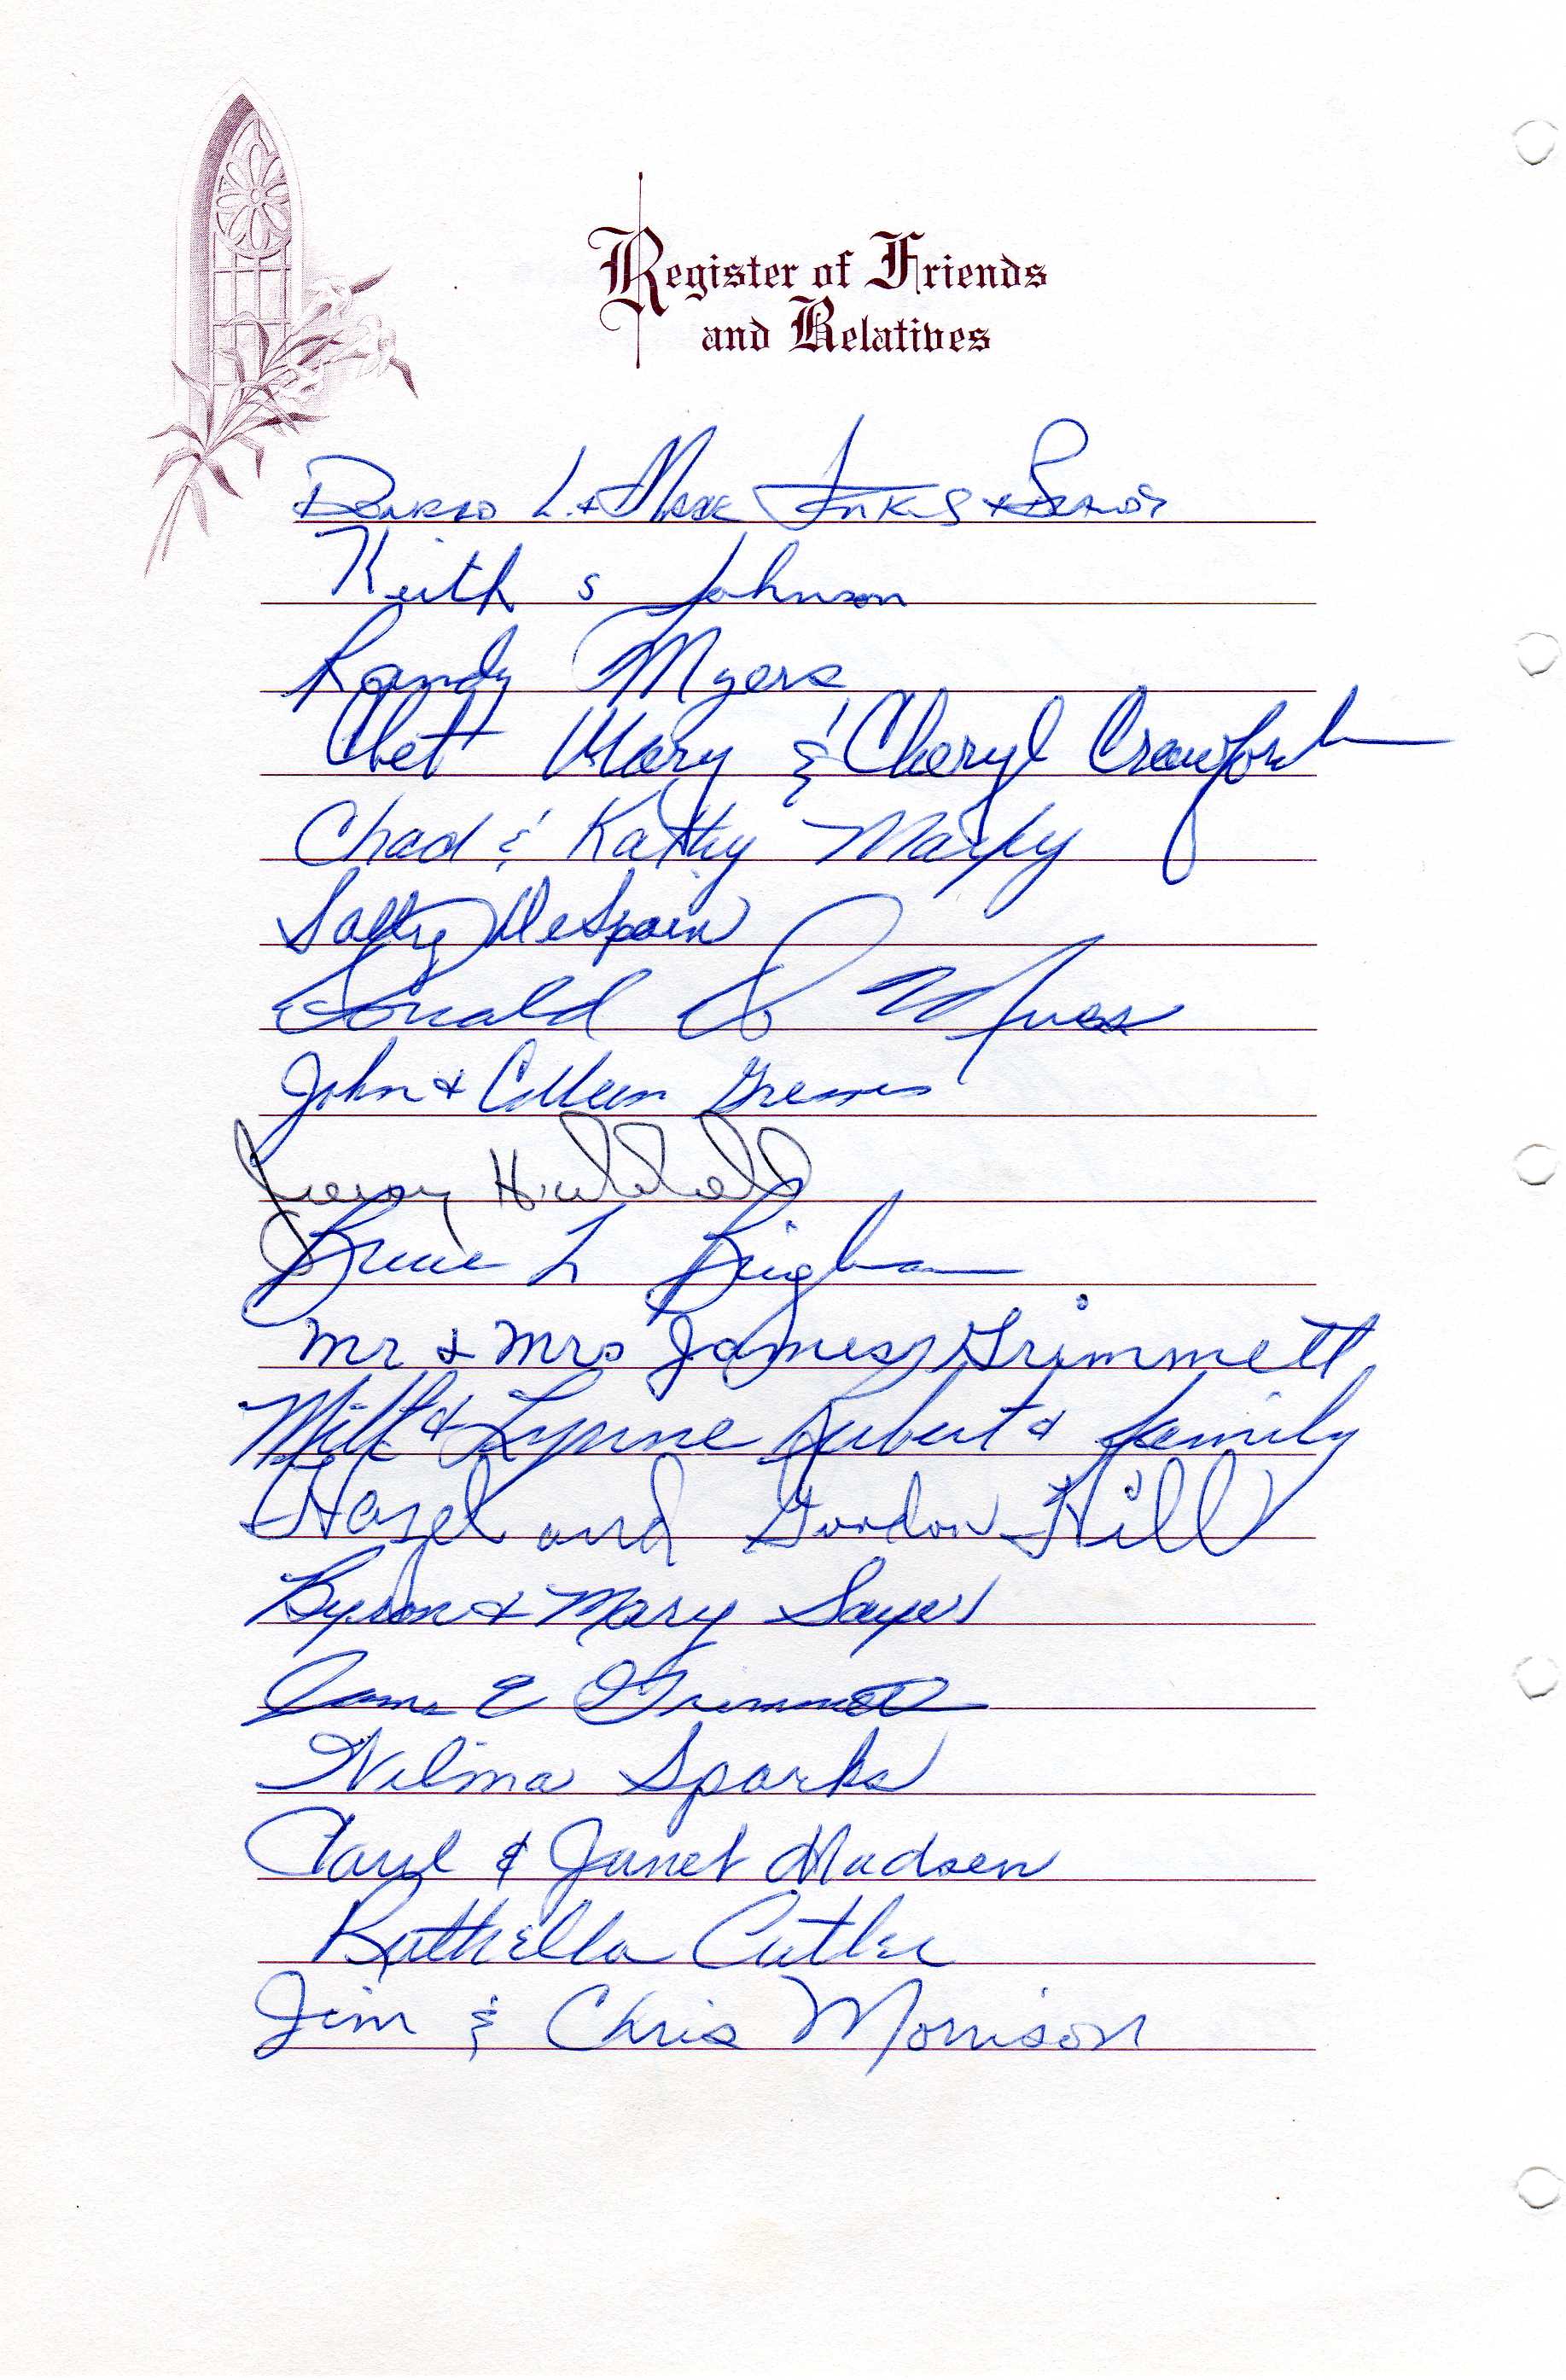 Register of Friends
and Relatives
L. &
Keith S Johnson
Randy Myers
Chet Mary & Cheryl Crawford
Chad & Kathy
Sally DeSpain
Donald
John & Colleen Greaves
Bruce L Bingham
Mr & Mrs James Grimmett
Milt & Lynne & family
Hazel and Gordon Hill
Byron & Mary Sayer
E Grimmett
Wilma Sparks
& Janet Madsen
Ruthella Cutler
Jim & Chris Morrison